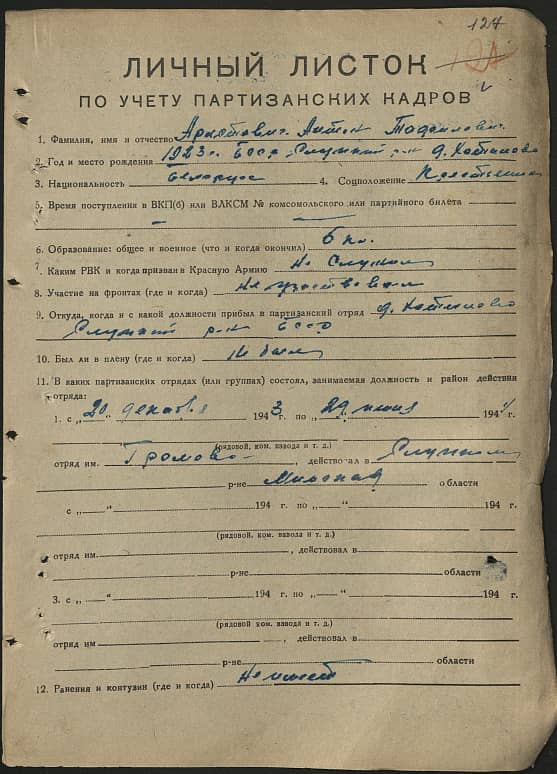 127
ЛИЧНЫЙ ЛИСТОК
ПО УЧЕТУ ПАРТИЗАНСКИХ КАДРОВ
1. Фамилия, имя и отчество Антон
2. Год и место рождения 1923 г. БССР Слуцкий р-н д.
3. Национальность Белорус 4. Соцположение
5. Время поступления в ВКП(б) или ВЛКСМ № комсомольского или партийного билета
—
6. Образование: общее и военное (что и когда окончил) 6 кл.
7. Каким РВК и когда призван в Красную Армию Не служил
8. Участие на фронтах (где и когда) Не участвовал
9. Откуда, когда и с какой должности прибыл в партизанский отряд д.
Слуцкий р-н БССР
10. Был ли в плену (где и когда) Не был
11. В каких партизанских отрядах (или группах) состоял, занимаемая должность и район действия
отряда:
1. с „20 декабря 1943 г. по „29 июня 1944 г.
(рядовой, ком. взвода и т. д.)
отряд им. Громова, действовал в Слуцком
р-не Минской области
с „ “ 194 г. по „ “ 194 г.
(рядовой, ком. взвода и т. д.)
отряд им. , действовал в
р-не области
3. с „ “ 194 г. по „ “ 194 г.
(рядовой, ком. взвода и т. д.)
отряд им , действовал в
р-не области
12. Ранения и контузии (где и когда) Не имеет